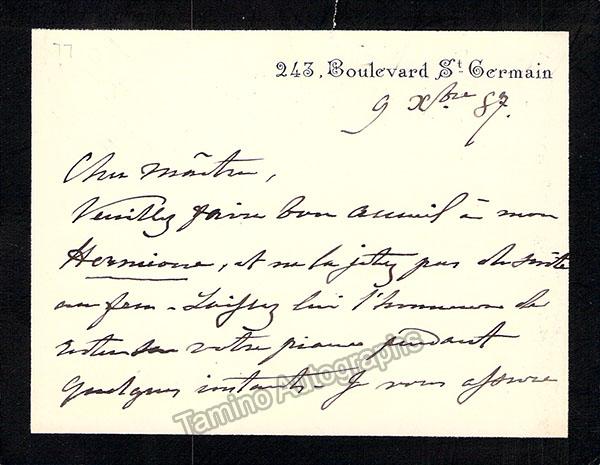 77
243, Boulevard St. Germain
9 Xbre 87.
Cher Maître,
Veuillez faire bon accueil à mon
Hermione, et ne la jetez pas de suite
au feu - Laissez lui l'honneur de
rester sur votre piano pendant
quelques instants. Je vous assure
Tamino Autographs